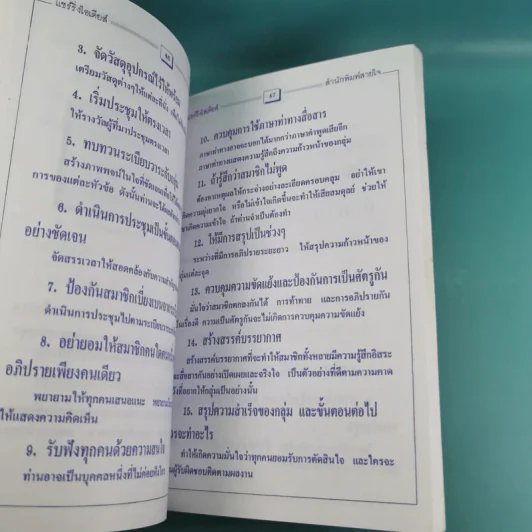 แชร์ริ่งไอเดียส์
3. จัดวัสดุอุปกรณ์ไว้ให้พร้อม
เตรียมวัสดุต่างๆให้แต่ละที่นั่ง
4. เริ่มประชุมให้ตรงเวลา
ให้รางวัลผู้ที่มาประชุมตรงเวลา
5. ทบทวนระเบียบวาระกับกลุ่ม
สร้างภาพพจน์ในใจที่ชัดเจน
การของแต่ละหัวข้อ ดังนั้นท่านจะได้
6. ดำเนินการประชุมเป็นขั้นตอน
อย่างชัดเจน
จัดสรรเวลาให้สอดคล้องกับความ
7. ป้องกันสมาชิกเบี่ยงเบน
ดำเนินการประชุมไปตามระเบียบวาระ
8. อย่ายอมให้สมาชิกคนใด
อภิปรายเพียงคนเดียว
พยายามให้ทุกคนเสนอแนะ
ให้แสดงความคิดเห็น
9. รับฟังทุกคนด้วยความสนใจ
ท่านอาจเป็นบุคคลหนึ่งที่ไม่ค่อย
67
สำนักพิมพ์สายใจ
10. ควบคุมการใช้ภาษาท่าทางสื่อสาร
ภาษาท่าทางอาจจะบอกได้มากกว่าภาษาคำพูดเสียอีก
ภาษาท่าทางแสดงความรู้สึกถึงความก้าวหน้าของกลุ่ม
11. ถ้ารู้สึกว่าสมาชิกไม่พูด
ต้องหาเหตุผลให้กระจ่างอย่างละเอียดรอบคลุม อย่าให้เขา
ความยุ่งยากใจ หรือไม่เข้าใจเกิดขึ้นจะทำให้เสียสมดุลย์ ช่วยให้
เกิดความเข้าใจ ถ้าท่านจำเป็นต้องทำ
12. ให้มีการสรุปเป็นช่วงๆ
ระหว่างที่มีการอภิปรายระยะยาว ให้สรุปความก้าวหน้าของ
แต่ละจุด
13. ควบคุมความขัดแย้งและป้องกันการเป็นศัตรูกัน
มั่นใจว่าสมาชิกตกลงกันได้ การท้าทาย และการอภิปรายกัน
เรื่องดี ความเป็นศัตรูกันจะไม่เกิดการควบคุมความขัดแย้ง
14. สร้างสรรค์บรรยากาศ
สร้างสรรค์บรรยากาศที่จะทำให้สมาชิกทั้งหลายมีความรู้สึกอิสระ
สื่อสารกันอย่างเปิดเผยและจริงใจ เป็นตัวอย่างที่ดีตามความคาด
ที่อยากให้กลุ่มเป็นอย่างนั้น
15. สรุปความสำเร็จของกลุ่ม และขั้นตอนต่อไป
ควรจะทำอะไร
ทำให้เกิดความมั่นใจว่าทุกคนยอมรับการตัดสินใจ และใครจะ
ผู้รับผิดชอบติดตามผลงาน